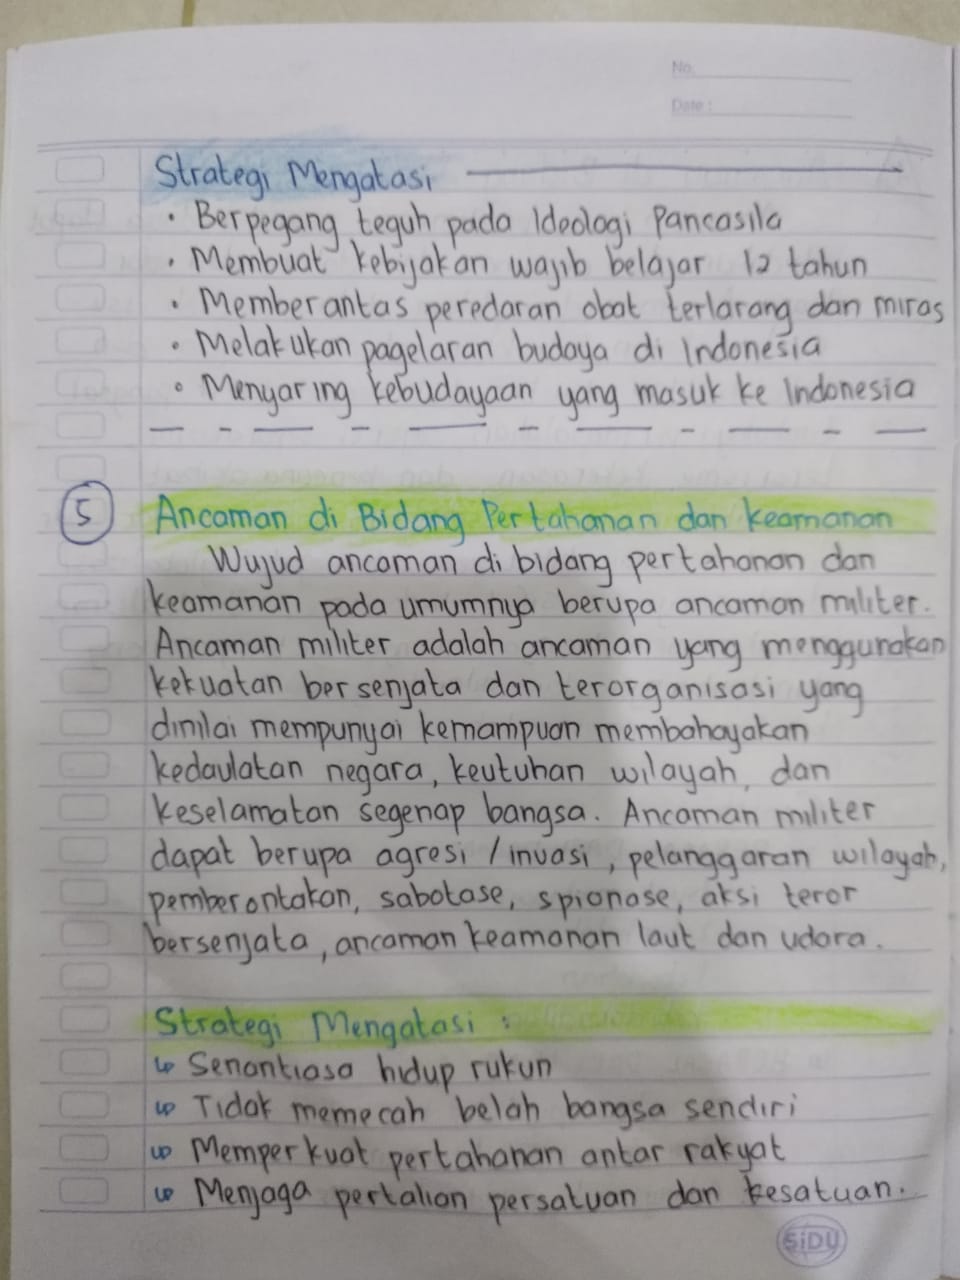 No.
Date :
Strategi Mengatasi
• Berpegang teguh pada Ideologi Pancasila
• Membuat kebijakan wajib belajar 12 tahun
• Memberantas peredaran obat terlarang dan miras
• Melakukan pagelaran budaya di Indonesia
• Menyaring kebudayaan yang masuk ke Indonesia
5 Ancaman di Bidang Pertahanan dan keamanan
Wujud ancaman di bidang pertahanan dan
keamanan pada umumnya berupa ancaman militer.
Ancaman militer adalah ancaman yang menggunakan
kekuatan bersenjata dan terorganisasi yang
dinilai mempunyai kemampuan membahayakan
kedaulatan negara, keutuhan wilayah, dan
keselamatan segenap bangsa. Ancaman militer
dapat berupa agresi / invasi, pelanggaran wilayah,
pemberontakan, sabotase, spionase, aksi teror
bersenjata, ancaman keamanan laut dan udara.
Strategi Mengatasi :
Senantiasa hidup rukun
Tidak memecah belah bangsa sendiri
Memperkuat pertahanan antar rakyat
Menjaga pertalian persatuan dan kesatuan.
SiDU